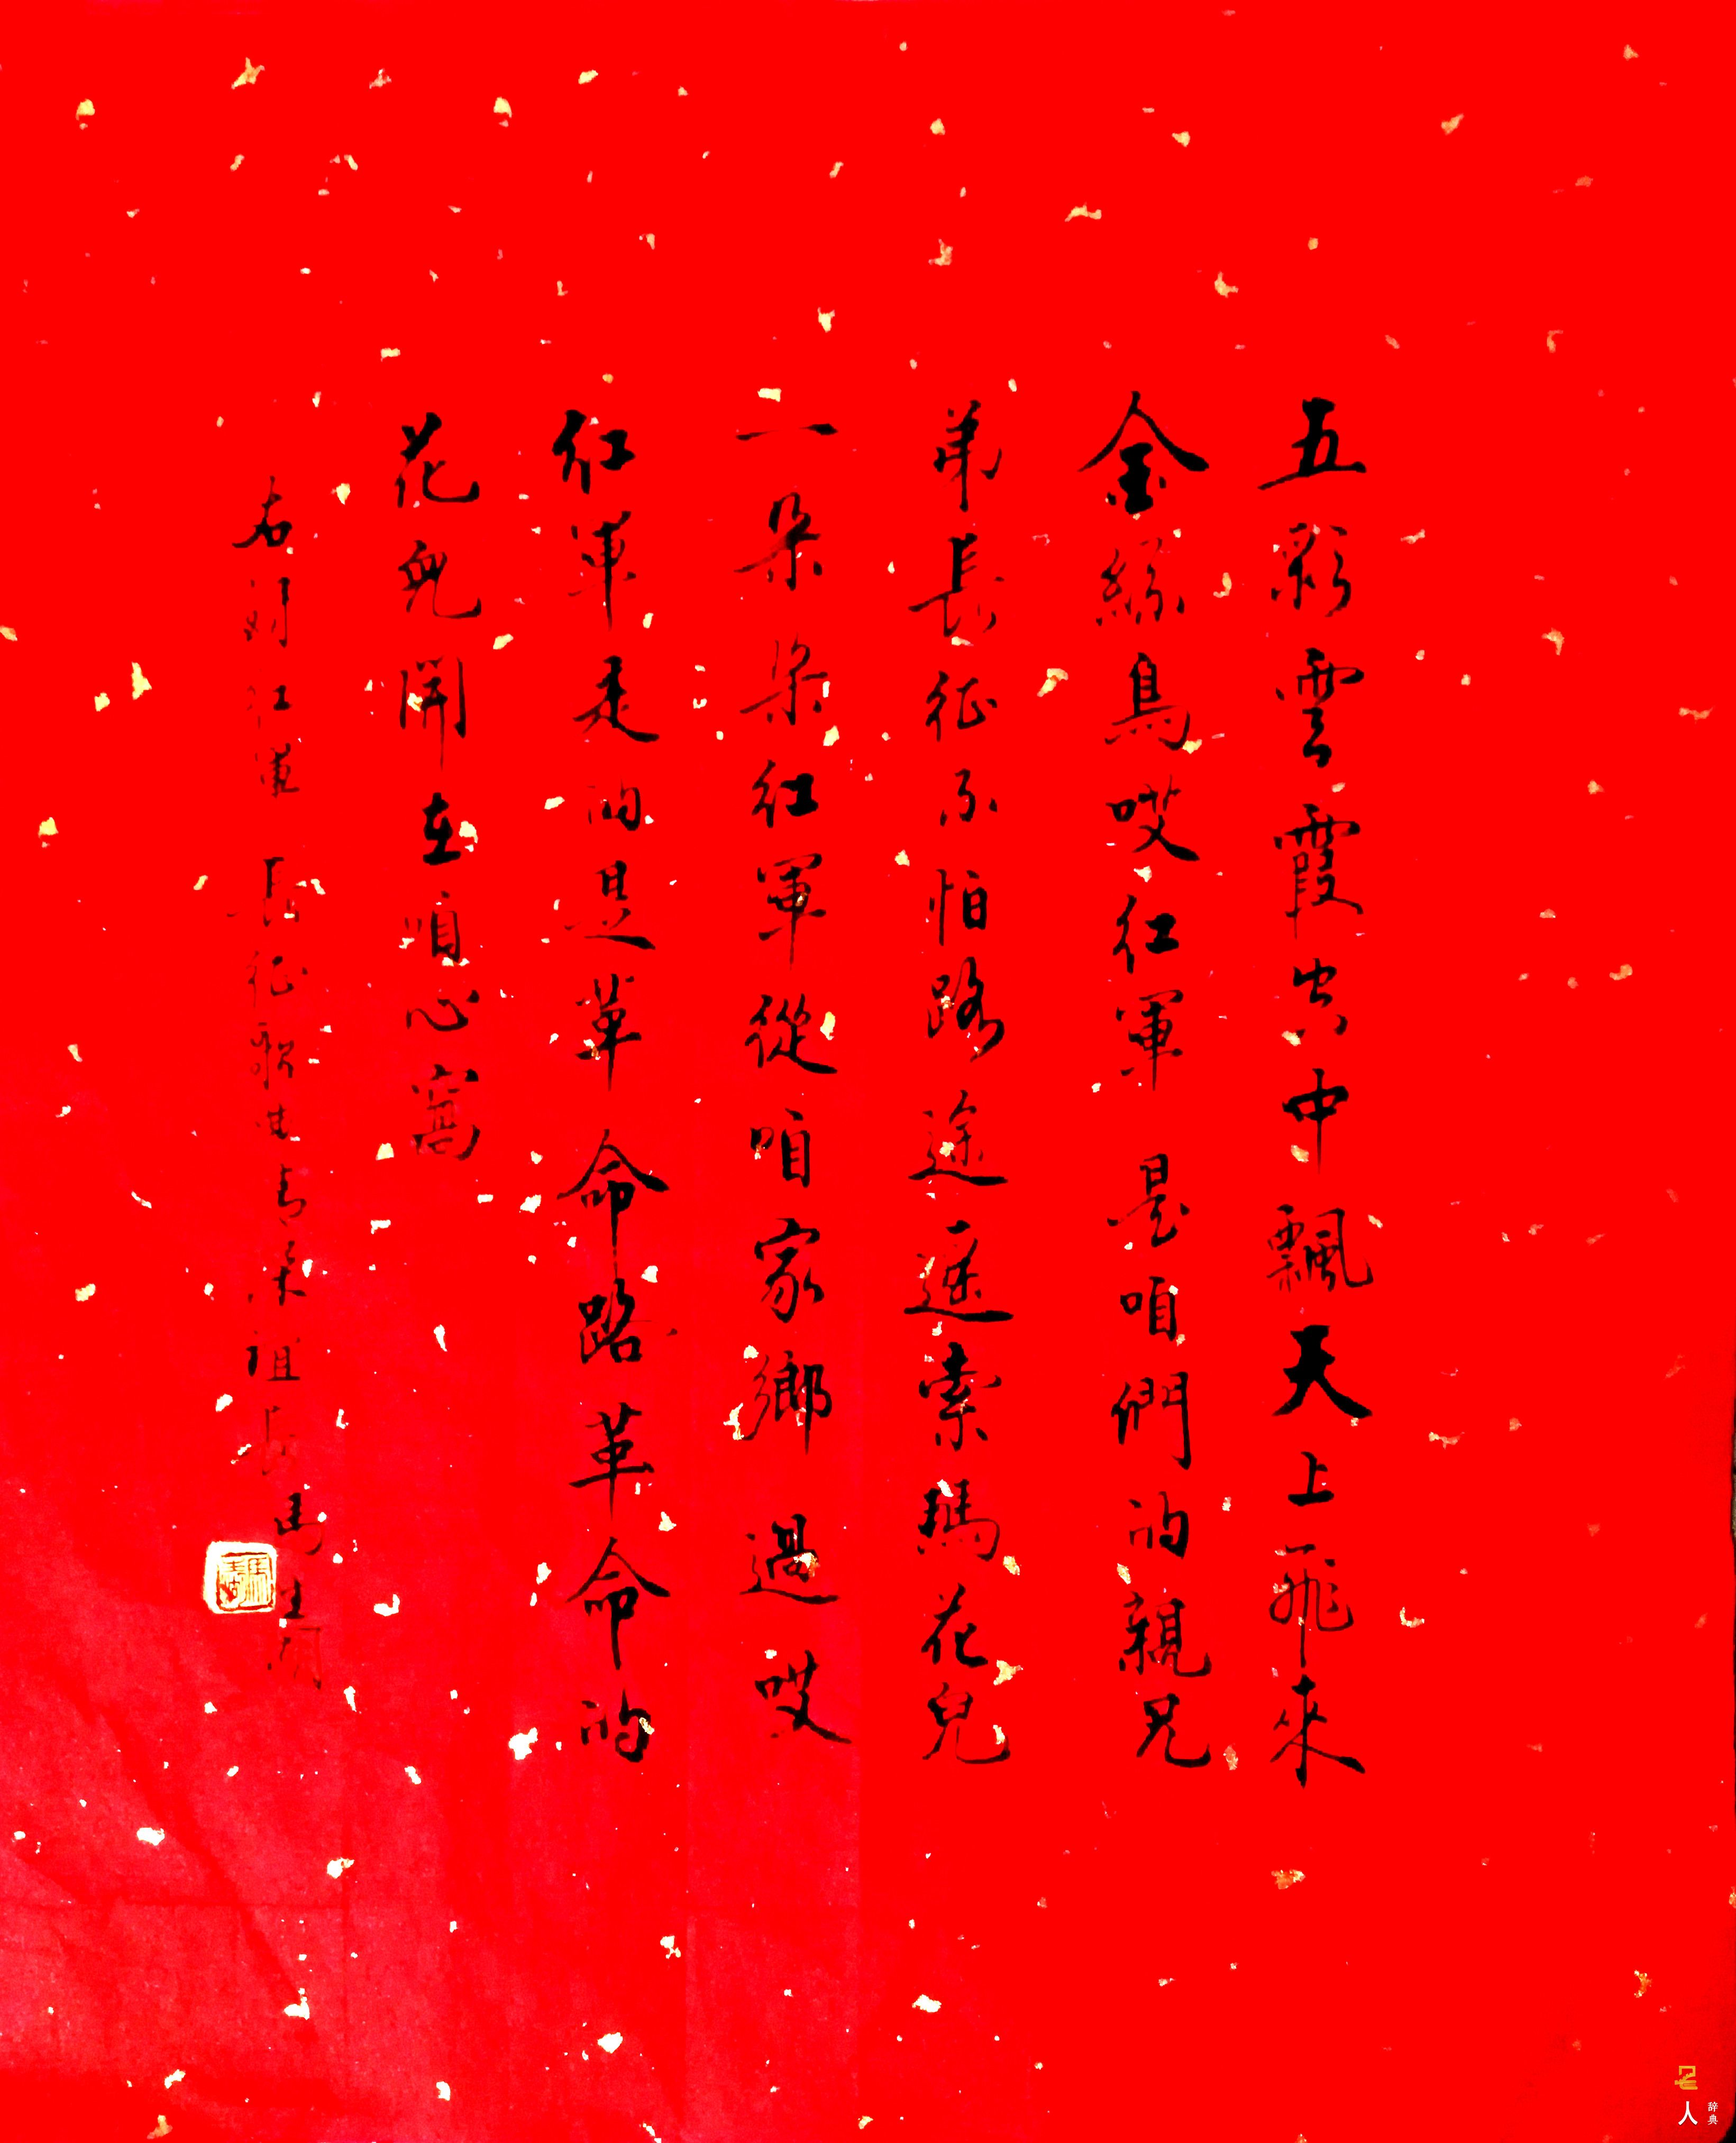 五彩雲霞空中飄天上飛來
金絲鳥哎紅軍是咱們的親兄
弟長征不怕路途遥索瑪花兒
一朵朵紅軍從咱家鄉過哎
紅軍走的是革命路革命的
花兒開在咱心窩
右 紅軍長征歌 馬
人
辞典